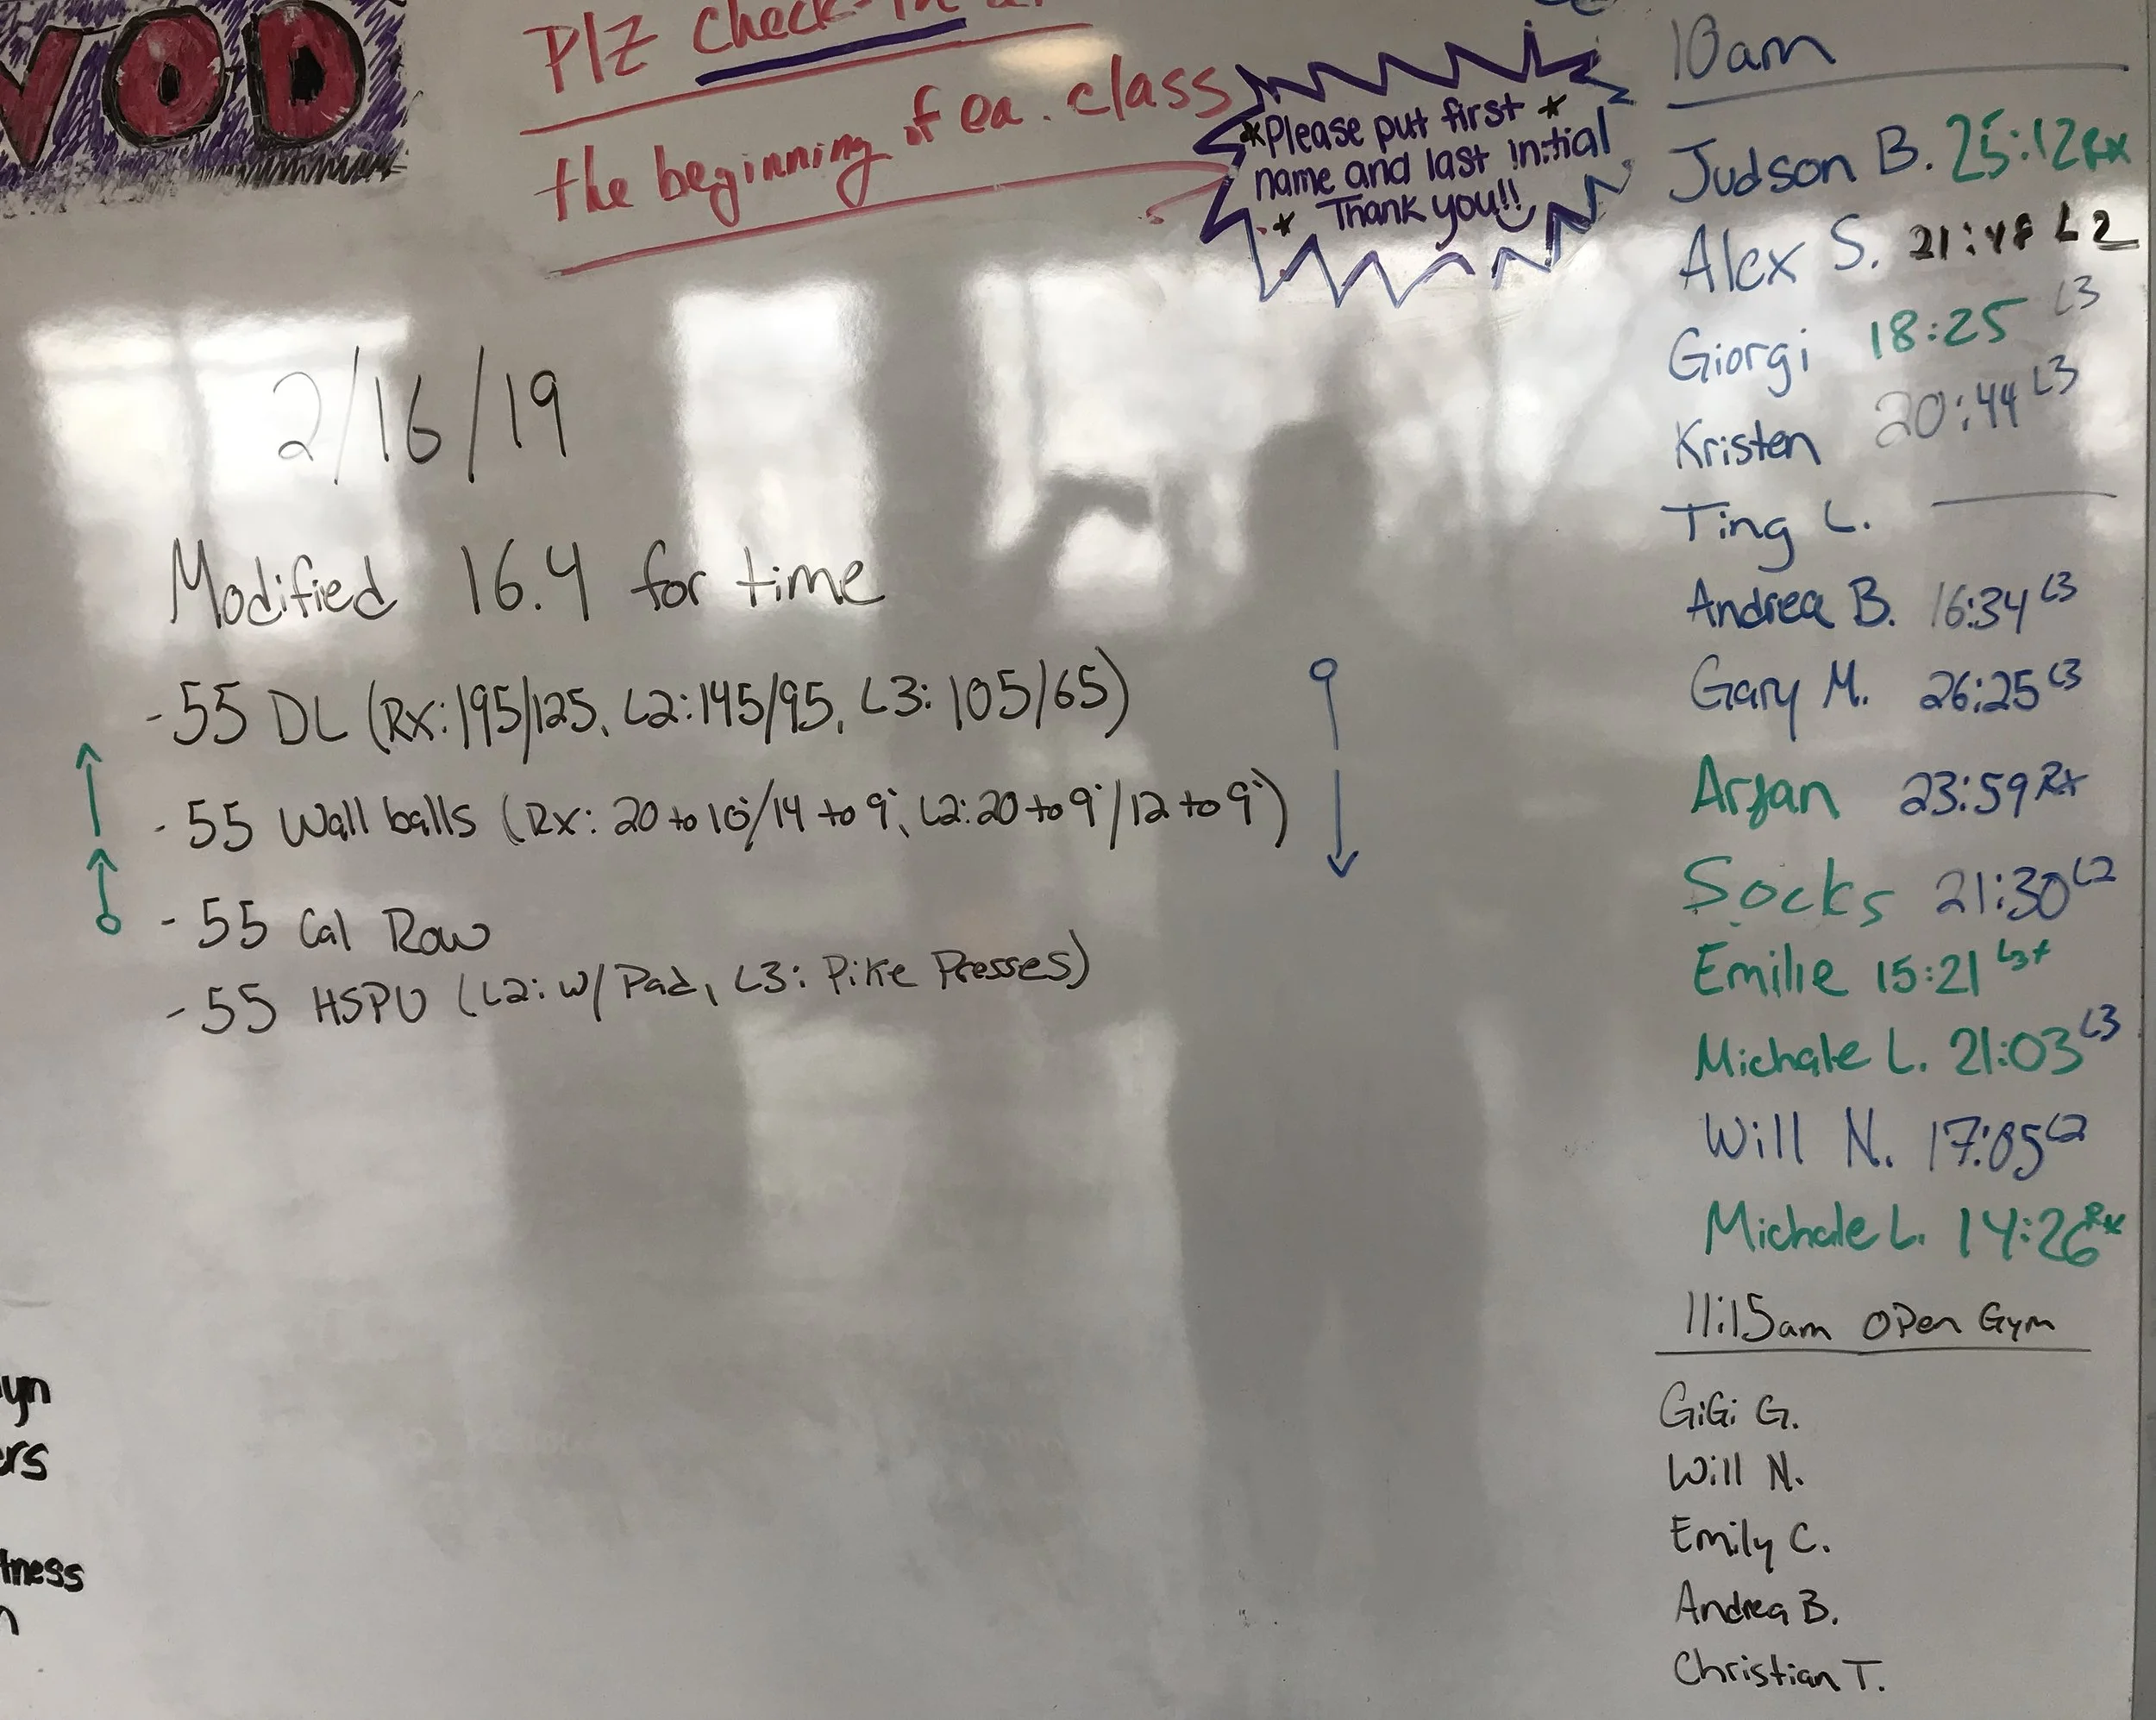 WOD
Plz check-in
the beginning of ea. class
*Please put first *
name and last initial
* Thank you!!
2/16/19
Modified 16.4 for time
- 55 DL (Rx: 195/125, L2: 145/95, L3: 105/65)
- 55 Wall balls (Rx: 20 to 10'/14 to 9', L2: 20 to 9'/12 to 9')
- 55 Cal Row
- 55 HSPU (L2: w/ Pad, L3: Pike Presses)
10am
Judson B. 25:12 Rx
Alex S. 21:48 L2
Giorgi 18:25 L3
Kristen 20:44 L3
Ting L.
Andrea B. 16:34 L3
Gary M. 26:25 L3
Arjan 23:59 Rx
Socks 21:30 L2
Emilie 15:21 L3+
Michale L. 21:03 L3
Will N. 17:05 L2
Michale L. 14:26 Rx
11:15am Open Gym
GiGi G.
Will N.
Emily C.
Andrea B.
Christian T.